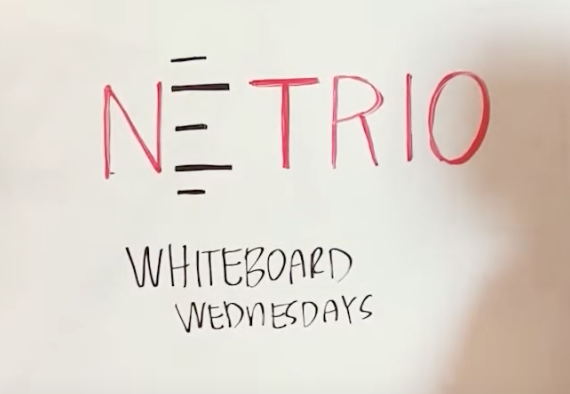 NETRIO
WHITEBOARD
WEDNESDAYS